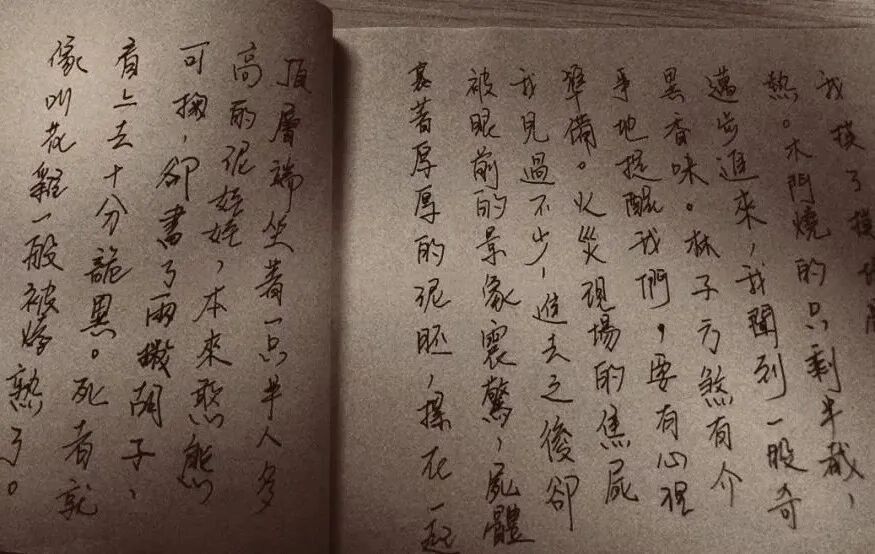 我摸了摸
熱。木門燒的只剩半截，
邁步進來，我聞到一股奇
異香味。林子方煞有介
事地提醒我們，要有心理
準備。火災現場的焦屍
我見過不少，進去之後卻
被眼前的景象震驚，屍體
裹著厚厚的泥胚，摞在一起
頂層端坐著一只半人多
高的泥娃娃，本來憨態
可掬，卻畫了兩撇胡子，
看上去十分詭異。死者就
像叫花雞一般被烤熟了。